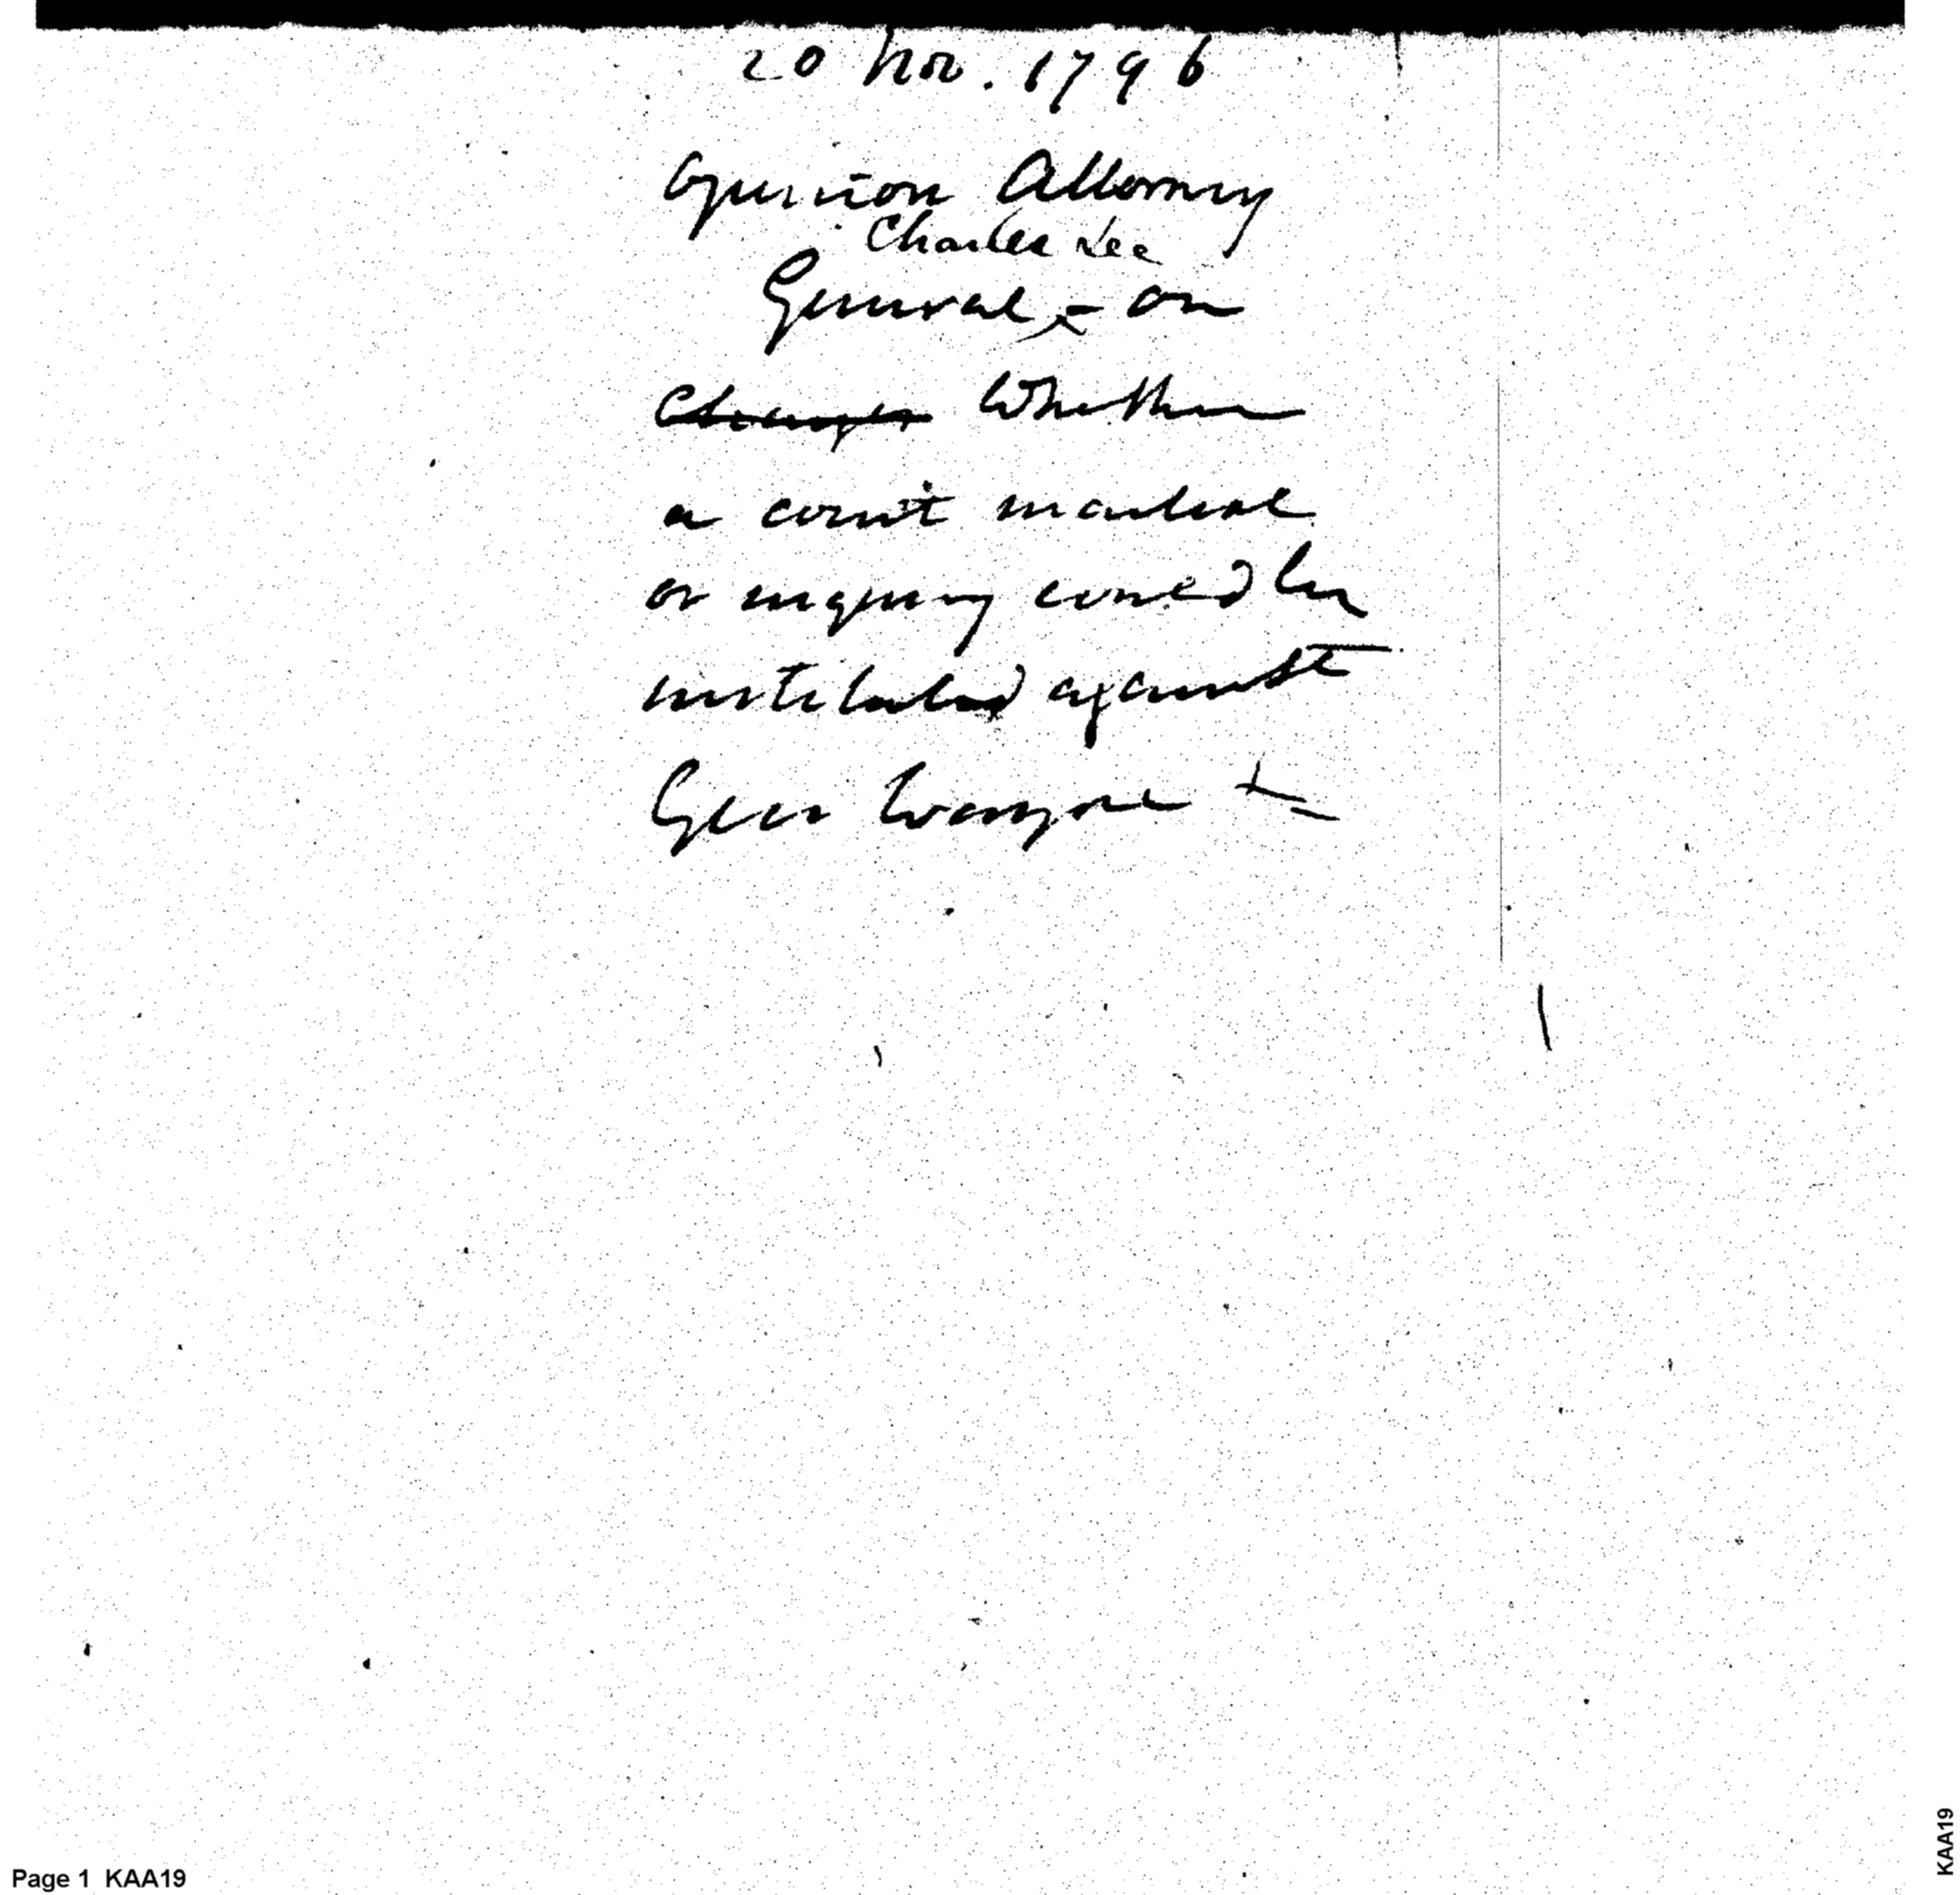 20 Nov. 1796
Opinion Attorney
Charles Lee
General, - on
Charges Whether
a court martial
or enquiry could be
instituted against
Genr Wayne
Page 1 KAA19
KAA19